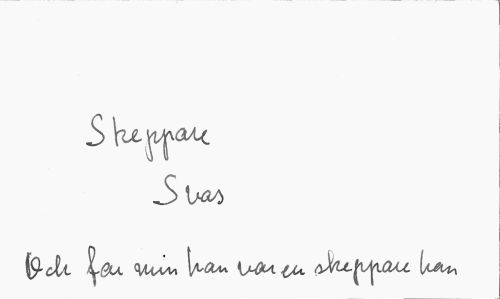 Skeppare
Svas
Och far min han var en skeppare han